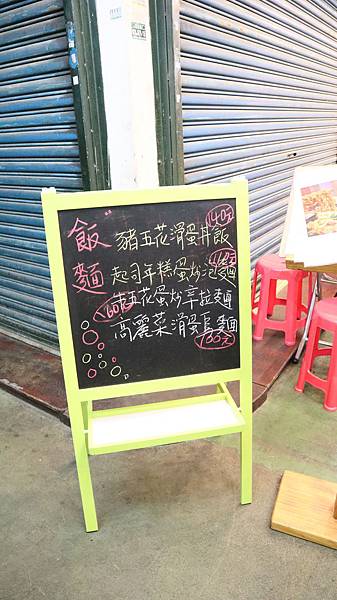 飯 豬五花滑蛋丼飯 140元
麵 起司年糕蛋炒泡麵
160元 豬五花蛋炒辛拉麵
高麗菜滑蛋烏麵 100元